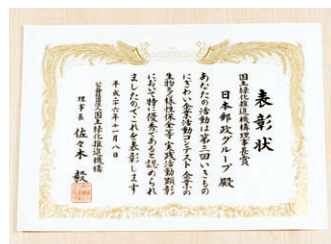 表彰状
国土緑化推進機構理事長賞
日本郵政グループ 殿
あなたの活動は第三回いきもの
にぎわい企業活動コンテスト 企業の
生物多様性保全等実践活動顕彰
において特に優秀であると認められ
ましたのでこれを表彰します
平成二十六年十一月八日
公益社団法人国土緑化推進機構
理事長 佐々木 毅